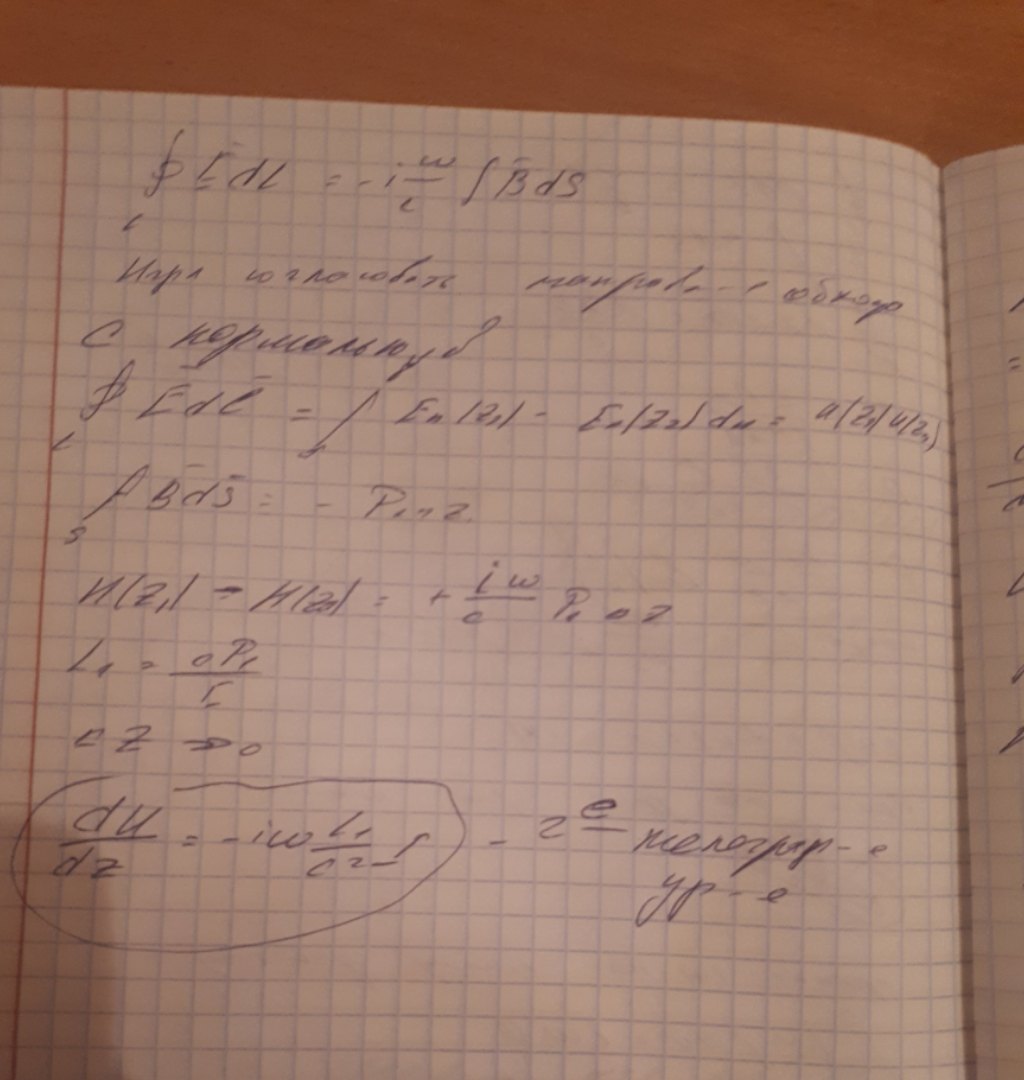 ∮ E̅ dl = -i ω/c ∫ B̅ dS
L
согласовать обхода
с нормалью
∮ E̅ dl̅ = ∫ En(z1) - En(z2) dn = U(z1) U(z2)
L
∫ B̅ dS̅ = - P1 Δ z
S
U(z1) - U(z2) = + iω/c P1 Δ z
L1 = cP1/I
Δ z → 0
dU/dz = -iω L1/c² I - 2ое телеграф-е
ур-е